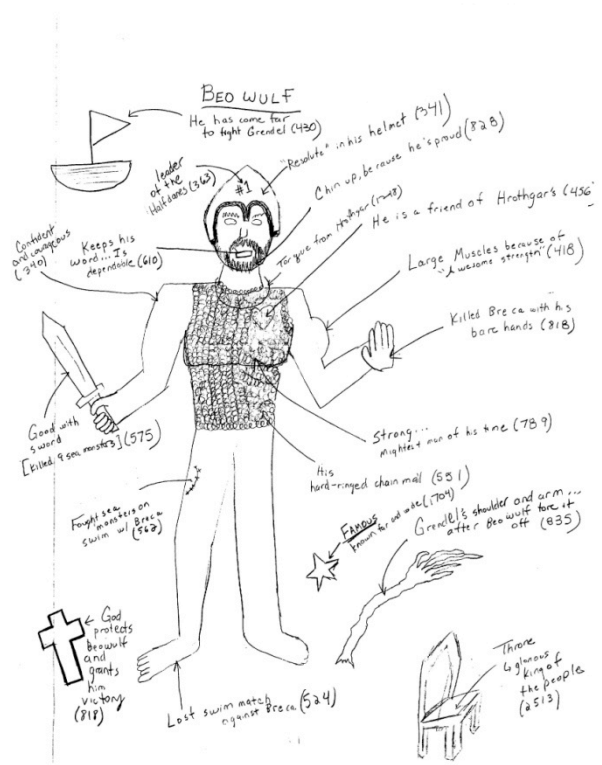 BEOWULF
He has come far
to fight Grendel (430)
leader
of the
Halfdanes (363)
#1
"Resolute" in his helmet (341)
Chin up, because he's proud (828)
Torque from Hrothgar
He is a friend of Hrothgar's (456)
Confident
and courageous
(340)
Keeps his
word... Is
dependable (610)
Large Muscles because of
"Awesome strength" (418)
Killed Breca with his
bare hands (818)
Good with
sword
[killed 9 sea monsters] (575)
Strong...
mightest man of his time (789)
His
hard-ringed chain mail (551)
Fought sea
monsters on
swim w/ Breca
FAMOUS
known far and wide (1704)
Grendel's shoulder and arm...
after Beowulf tore it
off (835)
God
protects
beowulf
and
grants
him
victory
(818)
Lost swim match
against Breca (524)
Throne
glorious
king of
the people
(2513)